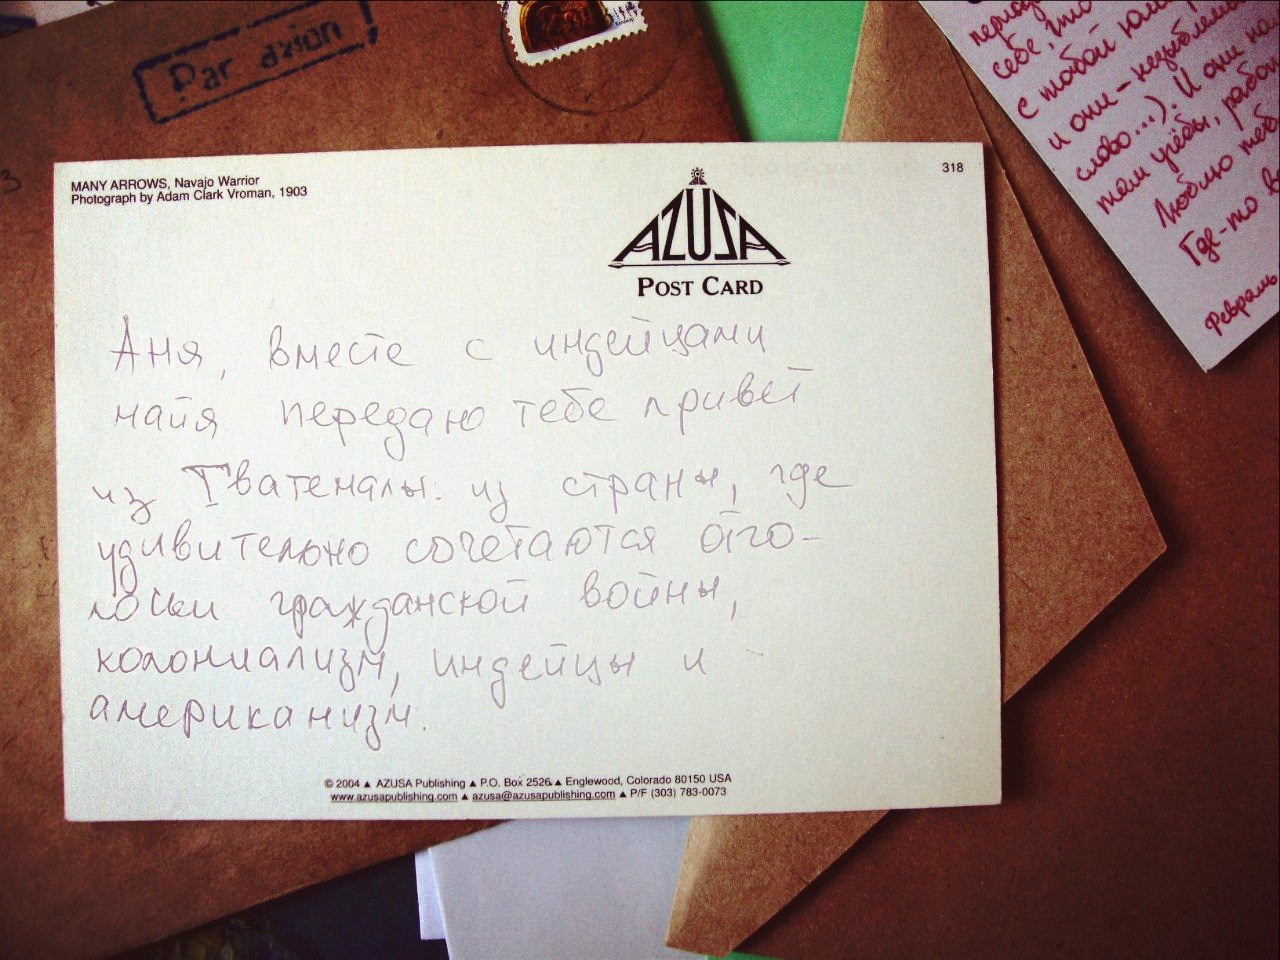 Par avion
MANY ARROWS, Navajo Warrior
Photograph by Adam Clark Vroman, 1903
318
AZUSA
POST CARD
Аня, вместе с индейцами
майя передаю тебе привет
из Гватемалы: из страны, где
удивительно сочетаются отго-
лоски гражданской войны,
колониализм, индейцы и
американизм.
© 2004 ▲ AZUSA Publishing ▲ P.O. Box 2526 ▲ Englewood, Colorado 80150 USA
www.azusapublishing.com ▲ azusa@azusapublishing.com ▲ P/F (303) 783-0073
3
себе,
с тобой
и они –
слово...). И они
тем учёбы,
Люблю тебя
Где-то
Февраль